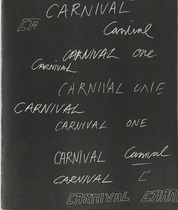 CARNIVAL
CA Carnival
CARNIVAL One
CARNIVAL
CARNIVAL ONE
CARNIVAL
CARNIVAL ONE
CARNIVAL Carnival
CARNIVAL C
CARNIVAL